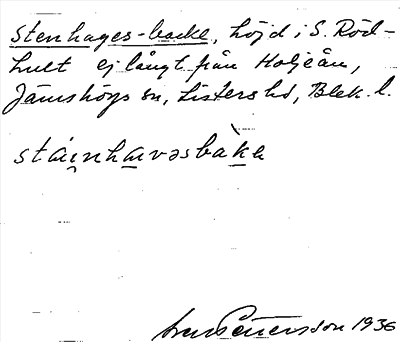 Stenhages-backe, höjd i S. Röd-
hult ej långt från Holjeån,
Jämshögs sn, Listers hd, Blek. l.
stáinhavəsbàkɐ
Pettersson 1936